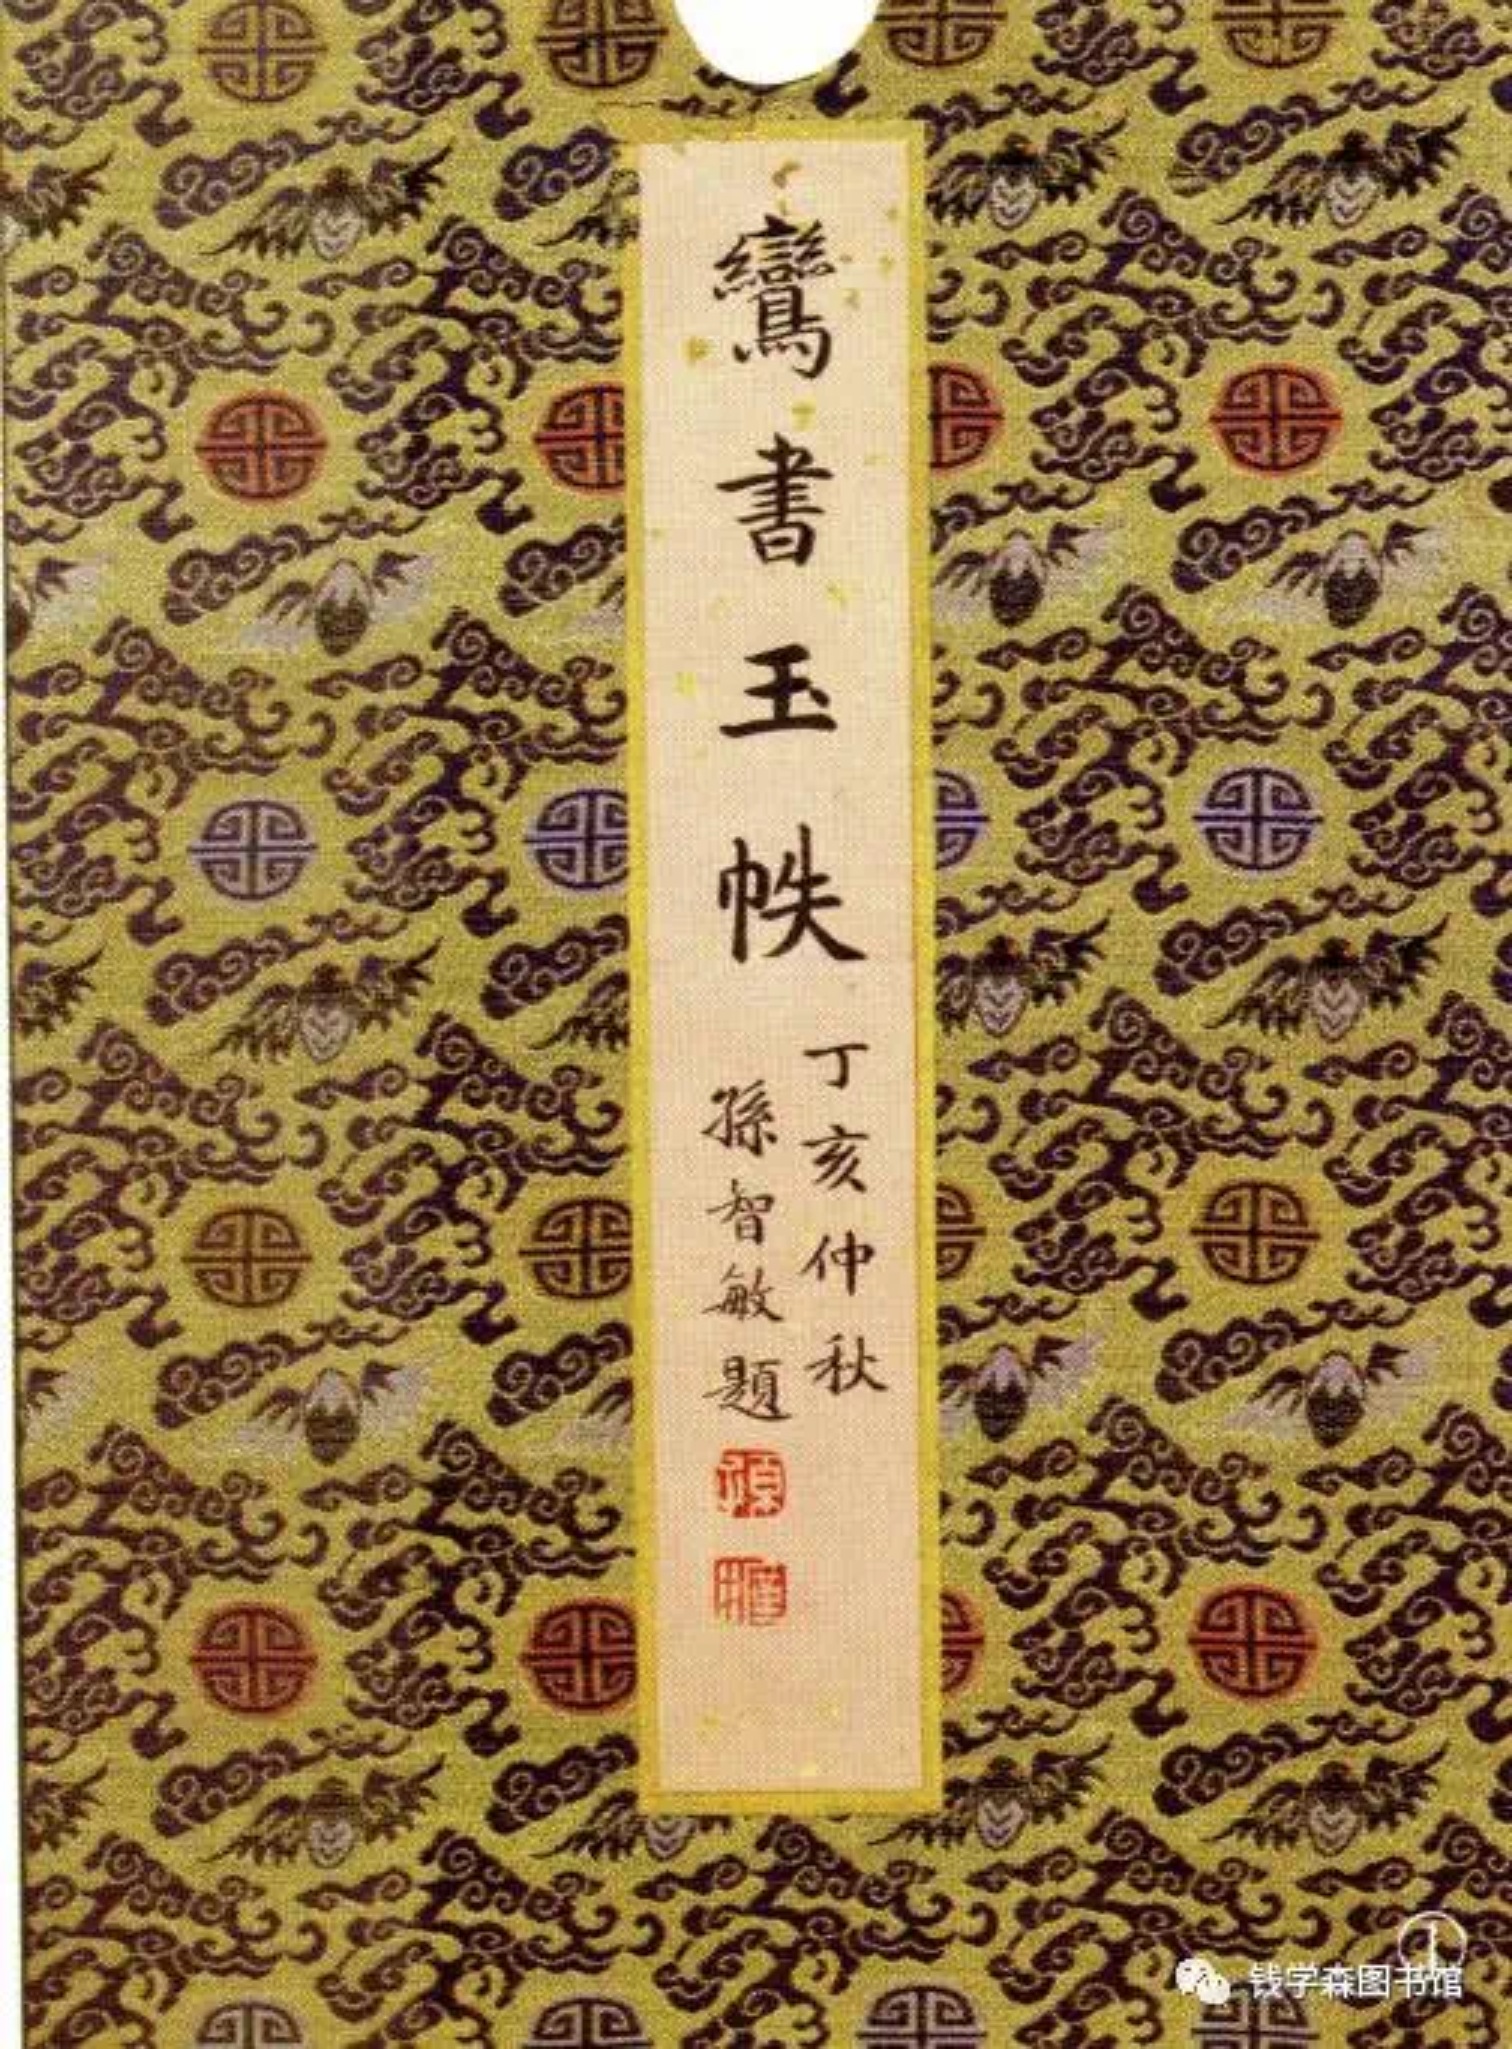 鸞書玉帙
丁亥仲秋
孫智敏題
钱学森图书馆